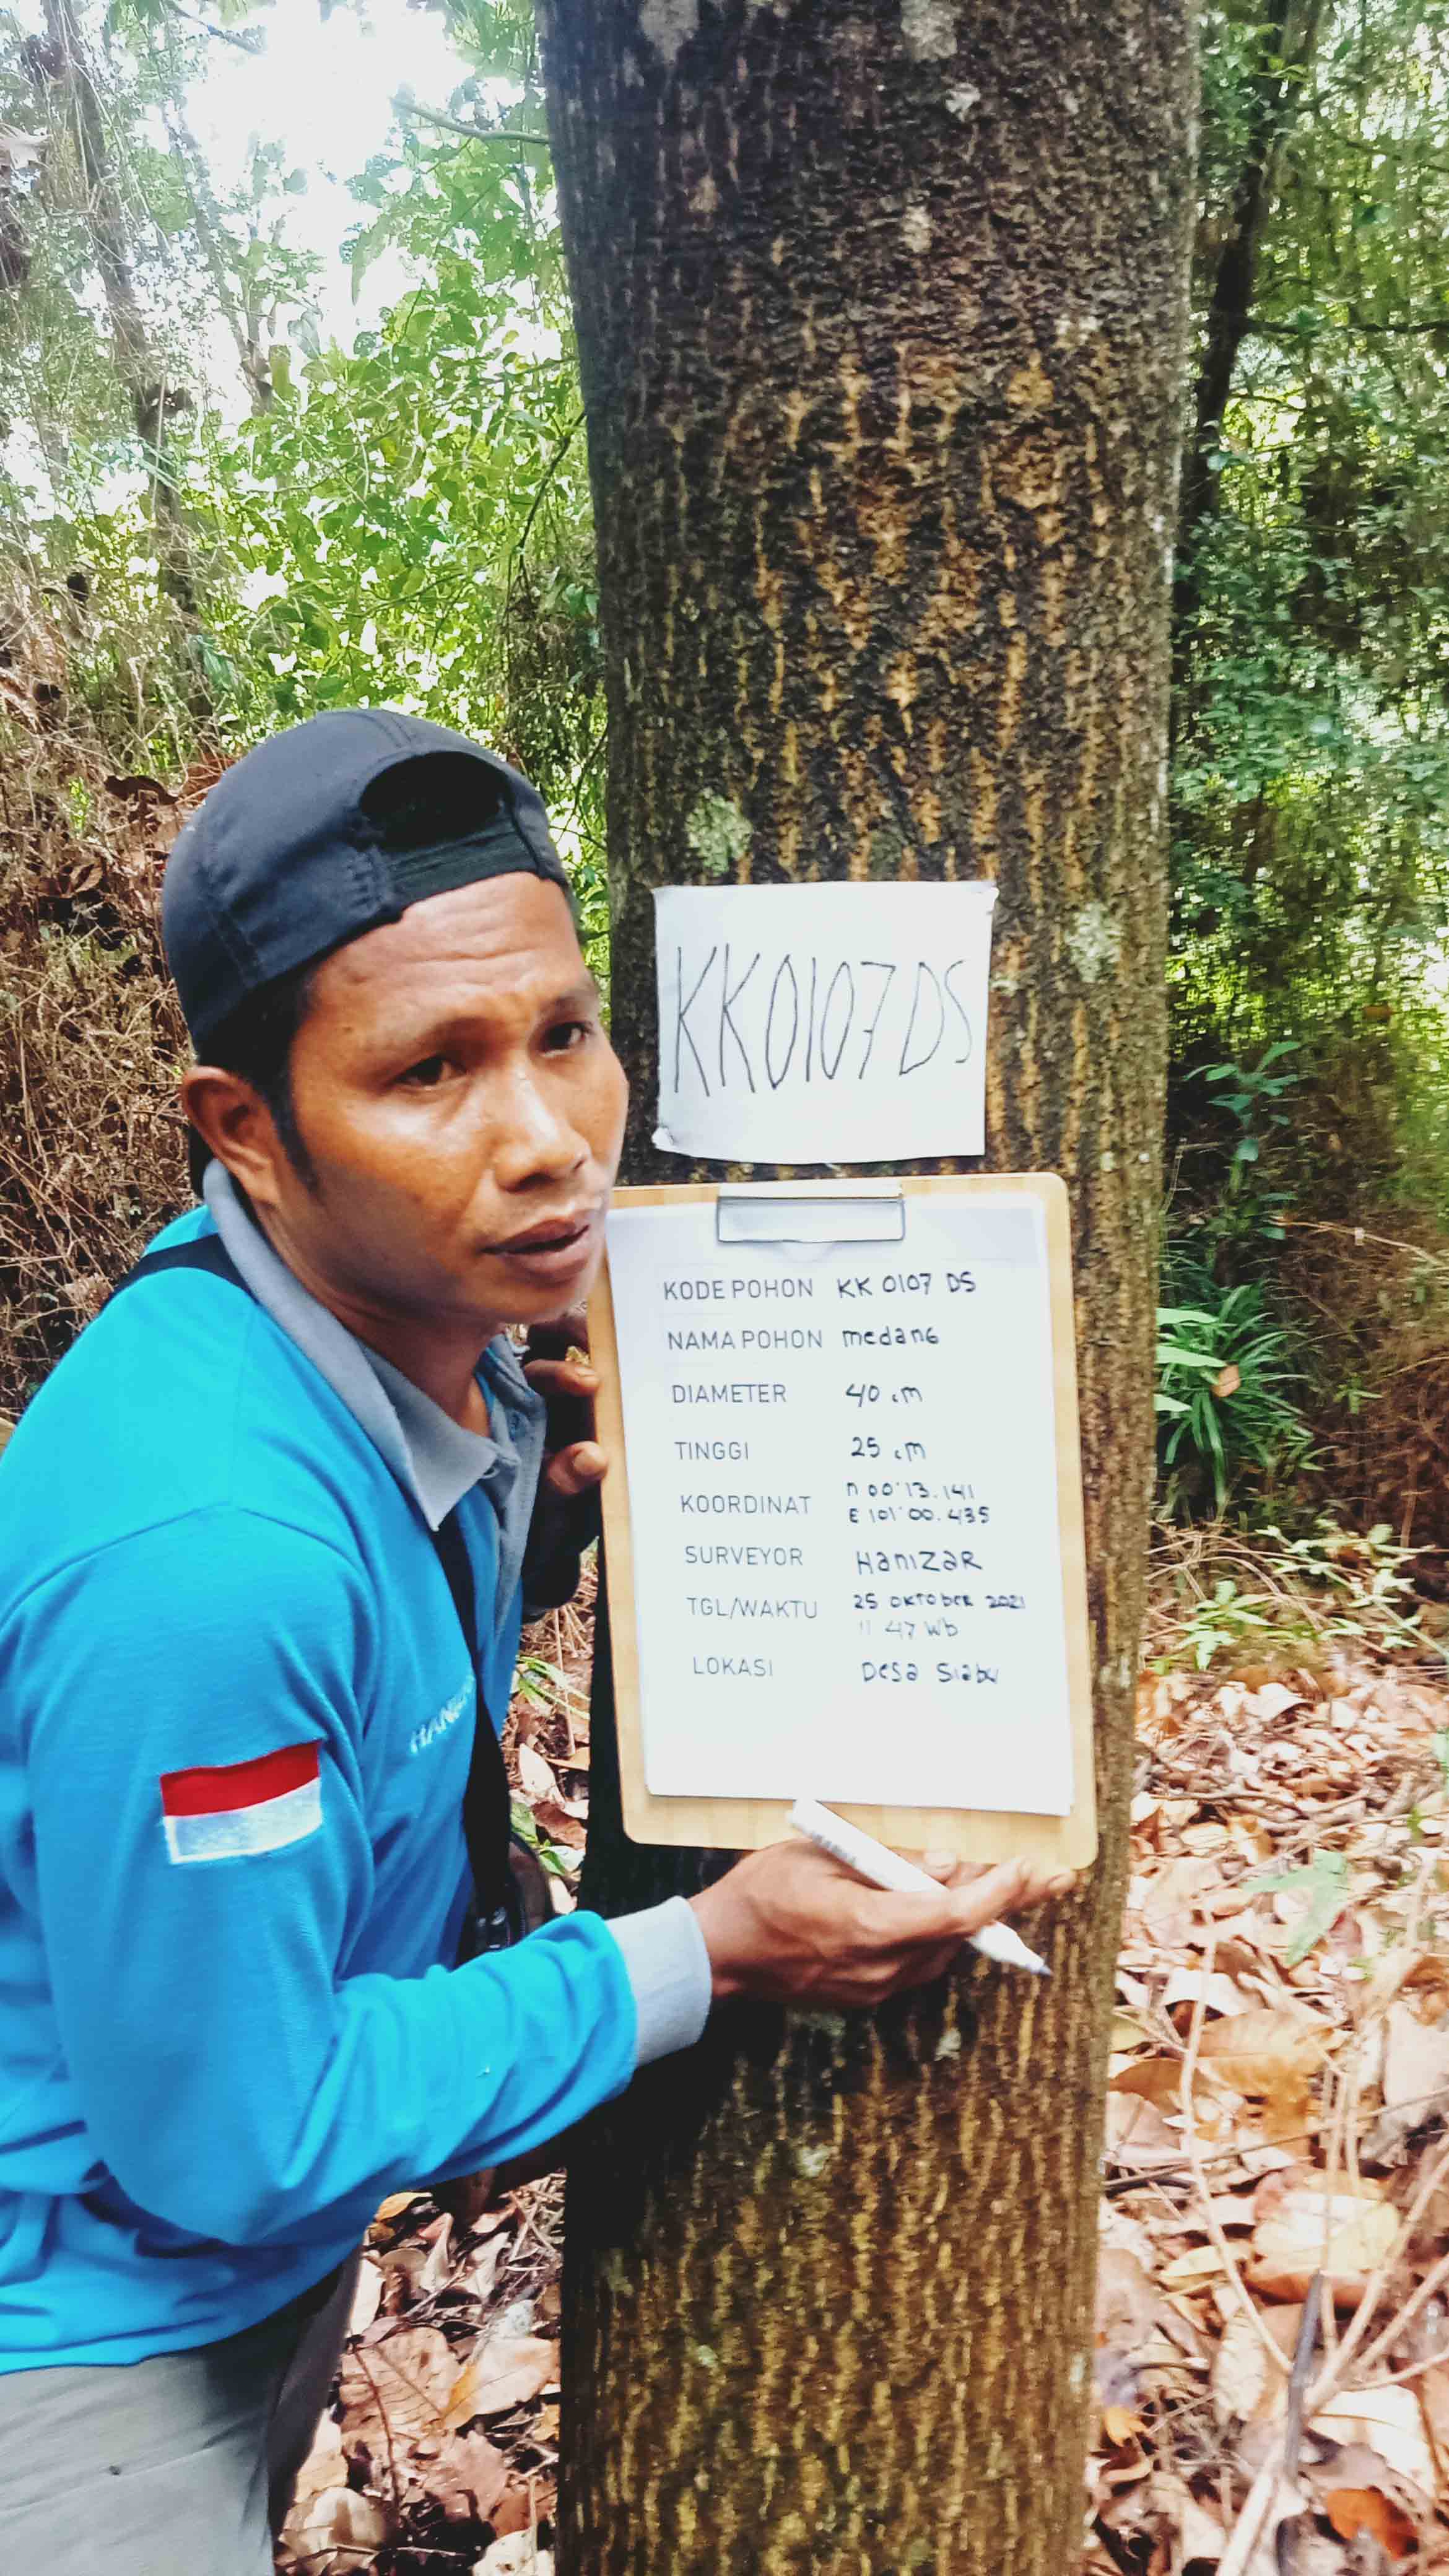 KK0107DS
KODE POHON KK 0107 DS
NAMA POHON medang
DIAMETER 40 cm
TINGGI 25 cm
KOORDINAT n 00°13.141
E 101°00.435
SURVEYOR HanizaR
TGL/WAKTU 25 oktober 2021
11 47 Wb
LOKASI Desa Siabu